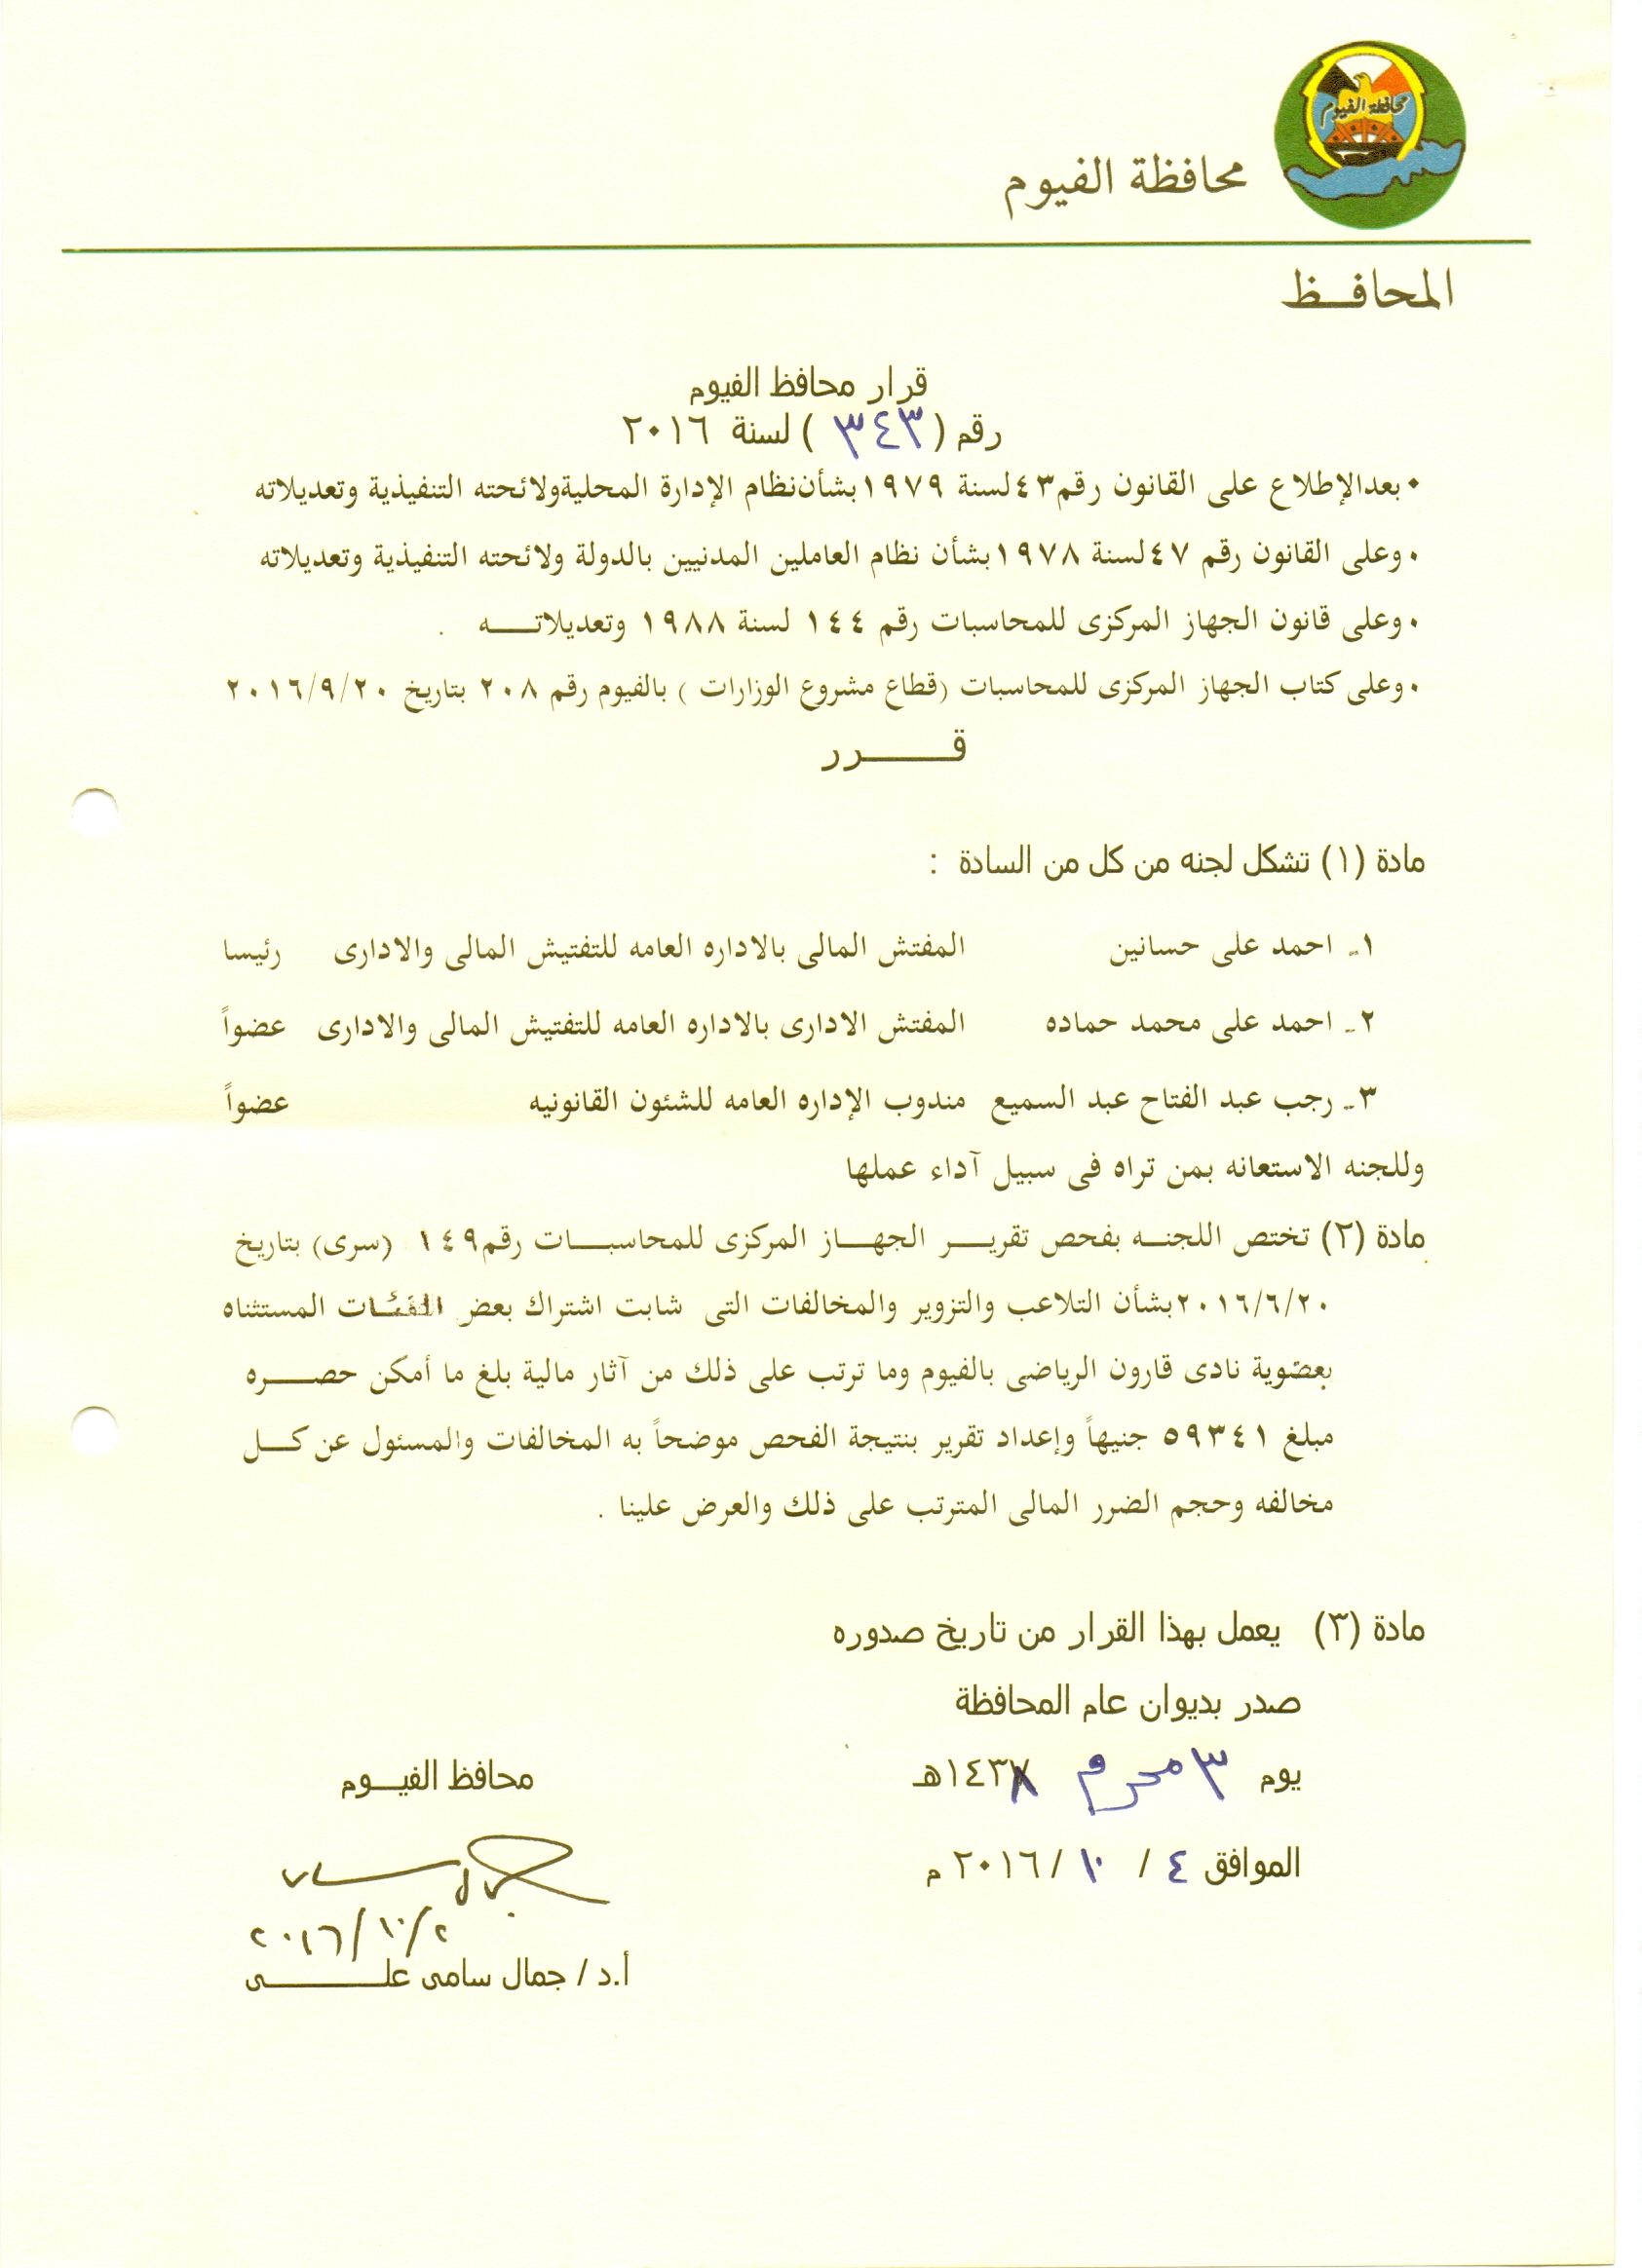 محافظة الفيوم
محافظة الفيوم
المحافــظ
قرار محافظ الفيوم
رقم ( ٣٤٣ ) لسنة ٢٠١٦
• بعدالإطلاع على القانون رقم٤٣لسنة ١٩٧٩بشأن نظام الإدارة المحليةولائحته التنفيذية وتعديلاته
• وعلى القانون رقم ٤٧لسنة ١٩٧٨بشأن نظام العاملين المدنيين بالدولة ولائحته التنفيذية وتعديلاته
• وعلى قانون الجهاز المركزى للمحاسبات رقم ١٤٤ لسنة ١٩٨٨ وتعديلاتــه .
• وعلى كتاب الجهاز المركزى للمحاسبات (قطاع مشروع الوزارات ) بالفيوم رقم ٢٠٨ بتاريخ ٢٠١٦/٩/٢٠
قــــرر
مادة (١) تشكل لجنه من كل من السادة :
١ـ احمد على حسانين المفتش المالى بالاداره العامه للتفتيش المالى والادارى رئيسا
٢ـ احمد على محمد حماده المفتش الادارى بالاداره العامه للتفتيش المالى والادارى عضواً
٣ـ رجب عبد الفتاح عبد السميع مندوب الإداره العامه للشئون القانونيه عضواً
وللجنه الاستعانه بمن تراه فى سبيل آداء عملها
مادة (٢) تختص اللجنــه بفحص تقريــر الجهــاز المركزى للمحاسبــات رقم١٤٩ (سرى) بتاريخ
٢٠١٦/٦/٢٠بشأن التلاعب والتزوير والمخالفات التى شابت اشتراك بعض الفئات المستثناه
بعضوية نادى قارون الرياضى بالفيوم وما ترتب على ذلك من آثار مالية بلغ ما أمكن حصــره
مبلغ ٥٩٣٤١ جنيهاً وإعداد تقرير بنتيجة الفحص موضحاً به المخالفات والمسئول عن كــل
مخالفه وحجم الضرر المالى المترتب على ذلك والعرض علينا .
مادة (٣) يعمل بهذا القرار من تاريخ صدوره
صدر بديوان عام المحافظة
يوم ٣ محرم ١٤٣٨هـ
محافظ الفيــوم
الموافق ٤ / ١٠ / ٢٠١٦ م
٢٠١٦/١٠/٢
أ.د / جمال سامى علــــــى